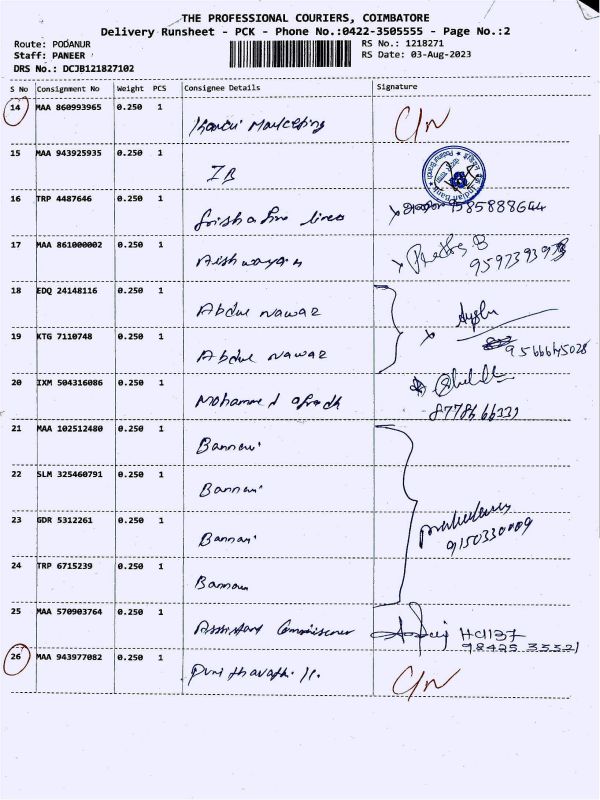 THE PROFESSIONAL COURIERS, COIMBATORE
Delivery Runsheet - PCK - Phone No.:0422-3505555 - Page No.:2
Route: PODANUR
Staff: PANEER
DRS No.: DCJB121827102
RS No.: 1218271
RS Date: 03-Aug-2023
S No Consignment No Weight PCS Consignee Details Signature
14 MAA 860993965 0.250 1 Marketing C/N
15 MAA 943925935 0.250 1 IB
Indian Bank
16 TRP 4487646 0.250 1
17 MAA 861000002 0.250 1 Aishwarya B
18 EDQ 24148116 0.250 1 Abdul Nawaz
19 KTG 7110748 0.250 1 Abdul Nawaz
9566645028
20 IXM 504316086 0.250 1 Mohammed
21 MAA 102512480 0.250 1 Bannari
22 SLM 325460791 0.250 1 Bannari
23 GDR 5312261 0.250 1 Bannari
9150330009
24 TRP 6715239 0.250 1 Bannari
25 MAA 570903764 0.250 1 Assistant Commissioner
98425 35321
26 MAA 943977082 0.250 1 C/N